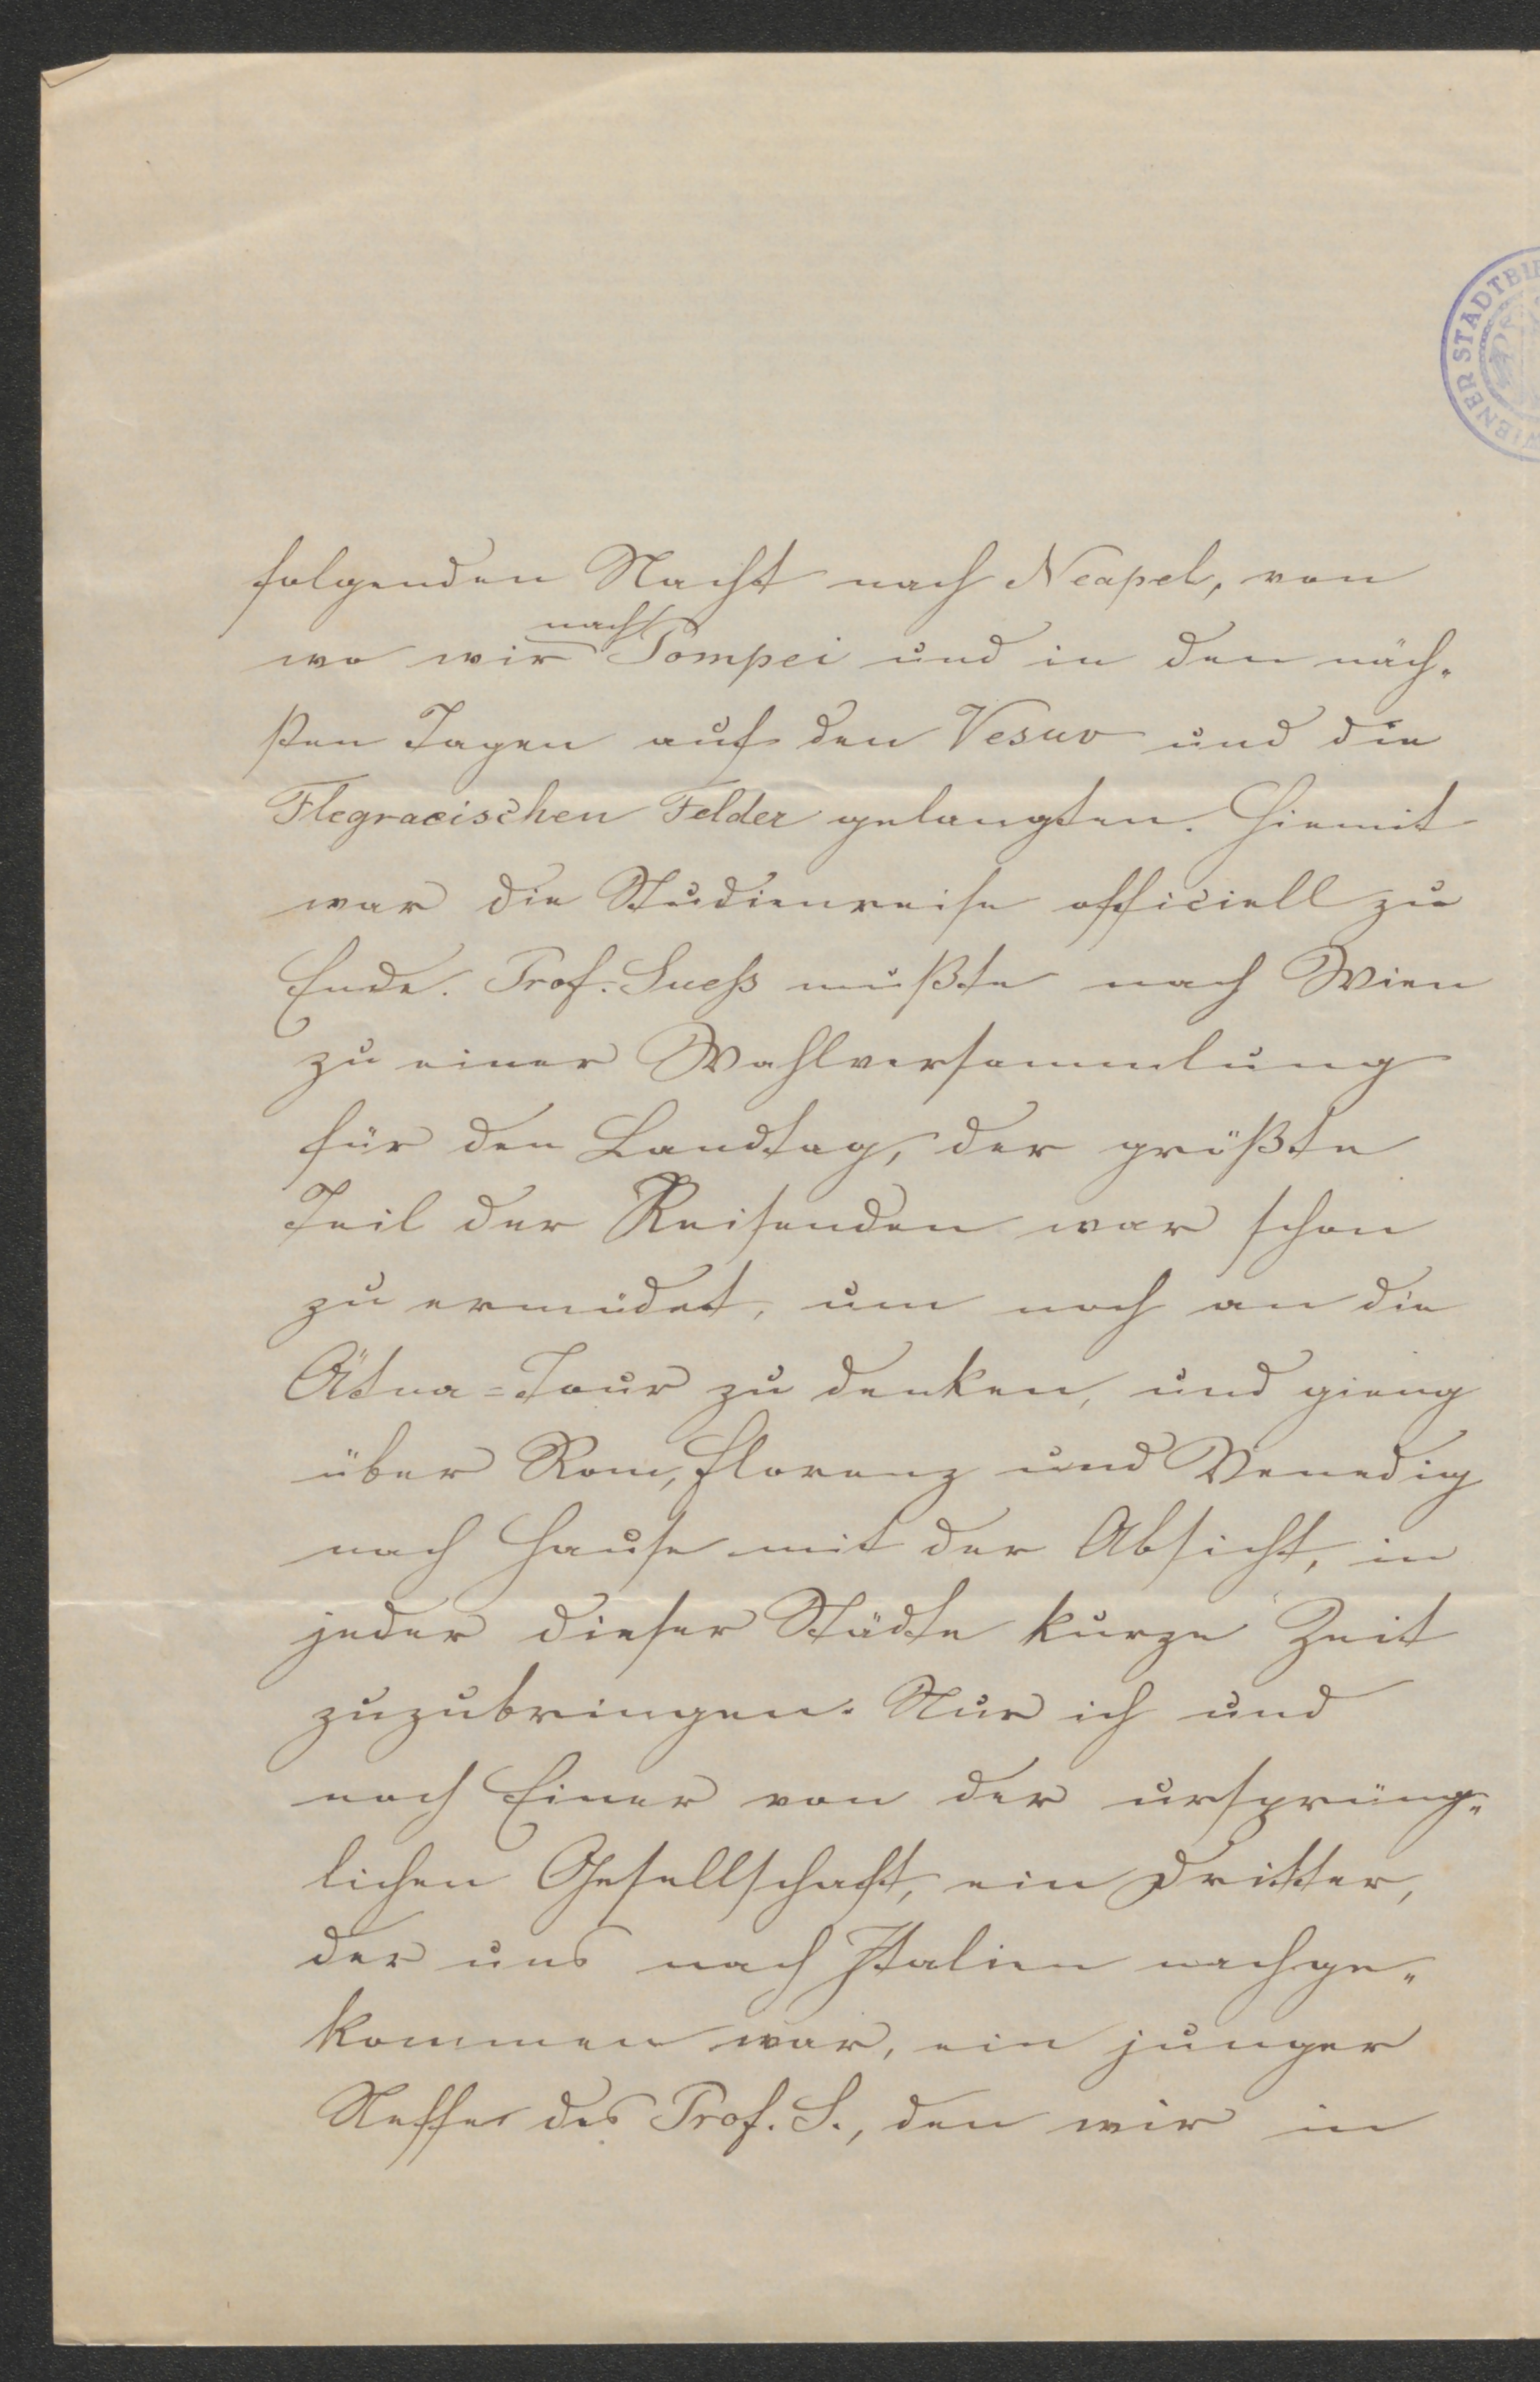 folgenden Nacht nach Neapel, von
nach
wo wir Pompei und in den näch-
sten Tagen auf den Vesuv und die
Flegraeischen Felder gelangten. Hiemit
war die Studienreise officiell zu
Ende. Prof. Suess mußte nach Wien
zu einer Wahlversammlung
für den Landtag, der größte
Teil der Reisenden war schon
zu ermüdet, um noch an die
Ätna-Tour zu denken, und gieng
über Rom, Florenz und Venedig
nach Hause mit der Absicht, in
jeder dieser Städte kurze Zeit
zuzubringen. Nur ich und
noch Einer von der ursprüng-
lichen Gesellschaft, ein Dritter,
der uns nach Italien nachge-
kommen war, ein junger
Neffe des Prof. S., den wir in
WIENER STADTBI